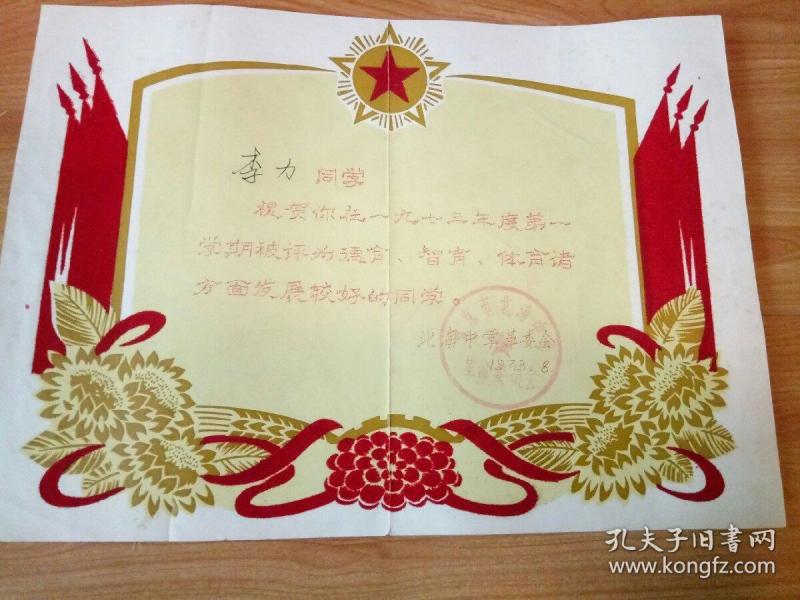 李力 同学
祝贺你在一九七三年度第一
学期被评为德育、智育、体育诸
方面发展较好的同学。
北滨中学革委会
1973.8.
孔夫子旧书网
www.kongfz.com